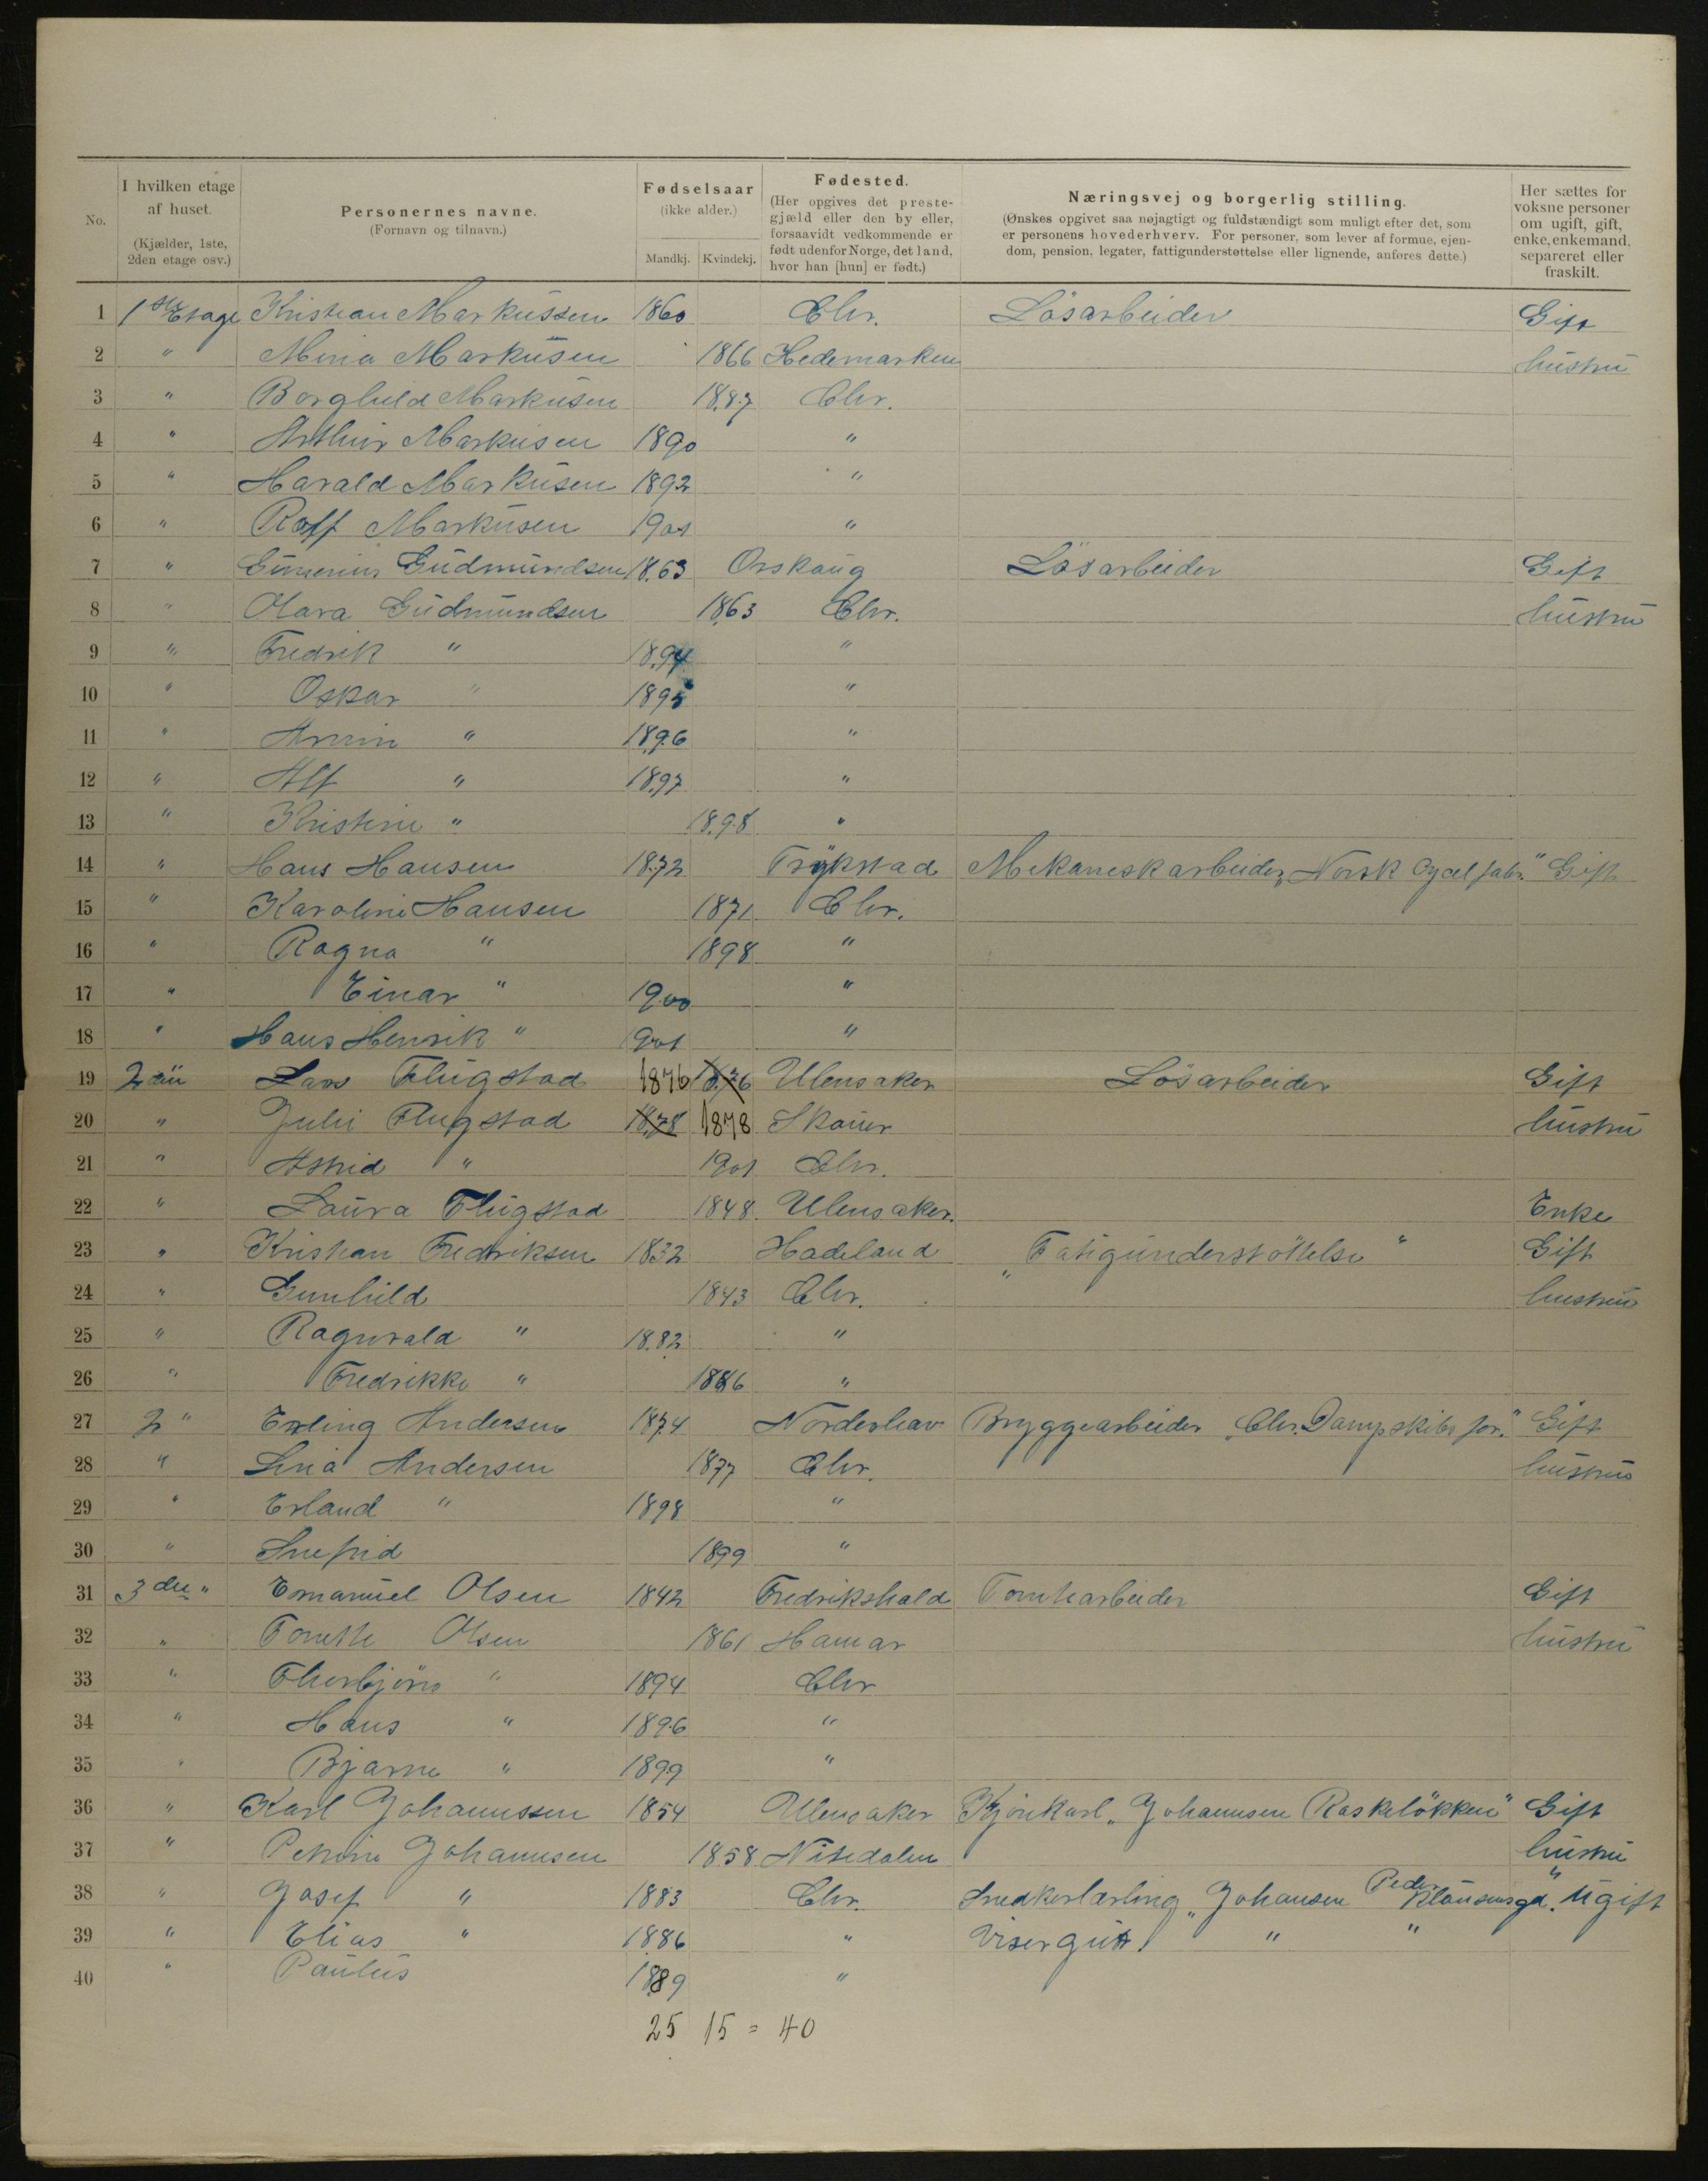 No.
I hvilken etage
af huset.
(Kjælder, 1ste,
2den etage osv.)
Personernes navne.
(Fornavn og tilnavn.)
Fødselsaar
(ikke alder.)
Mandkj. Kvindekj.
Fødested.
(Her opgives det preste-
gjæld eller den by eller,
forsaavidt vedkommende er
født udenfor Norge, det land,
hvor han [hun] er født.)
Næringsvej og borgerlig stilling.
(Ønskes opgivet saa nøjagtigt og fuldstændigt som muligt efter det, som
er personens hovederhverv. For personer, som lever af formue, ejen-
dom, pension, legater, fattigunderstøttelse eller lignende, anføres dette.)
Her sættes for
voksne personer
om ugift, gift,
enke, enkemand,
separeret eller
fraskilt.
1 1ste Etage Kristian Markussen 1860 Chr. Lösarbeider Gift
2 " Mina Markusen 1866 Hedemarken hustru
3 " Borghild Markusen 1887 Chr.
4 " Arthur Markusen 1890 "
5 " Harald Markusen 1892 "
6 " Rolf Markusen 1901 "
7 " Gudmundsen 1863 Orskaug Lösarbeider Gift
8 " Olava Gudmundsen 1863 Chr. hustru
9 " Fredrik " 1894 "
10 " Oskar " 1895 "
11 " Armin " 1896 "
12 " Alf " 1897 "
13 " Kristine " 1898 "
14 " Hans Hansen 1872 Trykstad Mekanesk arbeider "Norsk Cycel fabr." Gift
15 " Karoline Hansen 1871 Chr.
16 " Ragna " 1898 "
17 " Einar " 1900 "
18 " Hans Henrik " 1901 "
19 2den Lars Flugstad 1876 1876 Ulensaker Lösarbeider Gift
20 " Juli Flugstad 1878 1878 Skouer hustru
21 " Astrid " 1901 Chr.
22 " Laura Flugstad 1848 Ulensaker. Enke
23 " Kristian Fredriksen 1832 Hadeland "Fatigunderstöttelse" Gift
24 " Gunhild 1843 Chr. hustru
25 " Ragnvald " 1882 "
26 " Fredrikke " 1886 "
27 2 " Erling Andersen 1874 Norderhav Bryggearbeider "Chr. Dampskibs for." Gift
28 " Lina Andersen 1877 Chr. hustru
29 " Erland " 1898 "
30 " 1899 "
31 3die " Emanuel Olsen 1842 Fredrikshald Tomtearbeider Gift
32 " Tomette Olsen 1861 Hamar hustru
33 " Thorbjörn " 1894 Chr
34 " Hans " 1896 "
35 " Bjarne " 1899 "
36 " Karl Johannssen 1854 Ulensaker Kjörekarl "Johannsen Raskelökken" Gift
37 " Petrine Johannsen 1858 Nitedalen hustru
38 " Josef " 1883 Chr. Snedkerlærling "Johansen Peder Klausensgd." Ugift
39 " Elias " 1886 " Visergut " "
40 " Paulus 1889 "
25 15 = 40